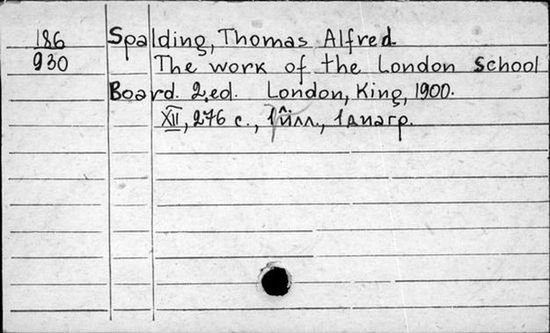 186
930
Spalding, Thomas Alfred
The work of the London School
Board. 2.ed. London, King, 1900.
XII, 276 с., 1 л. илл., 1 диагр.